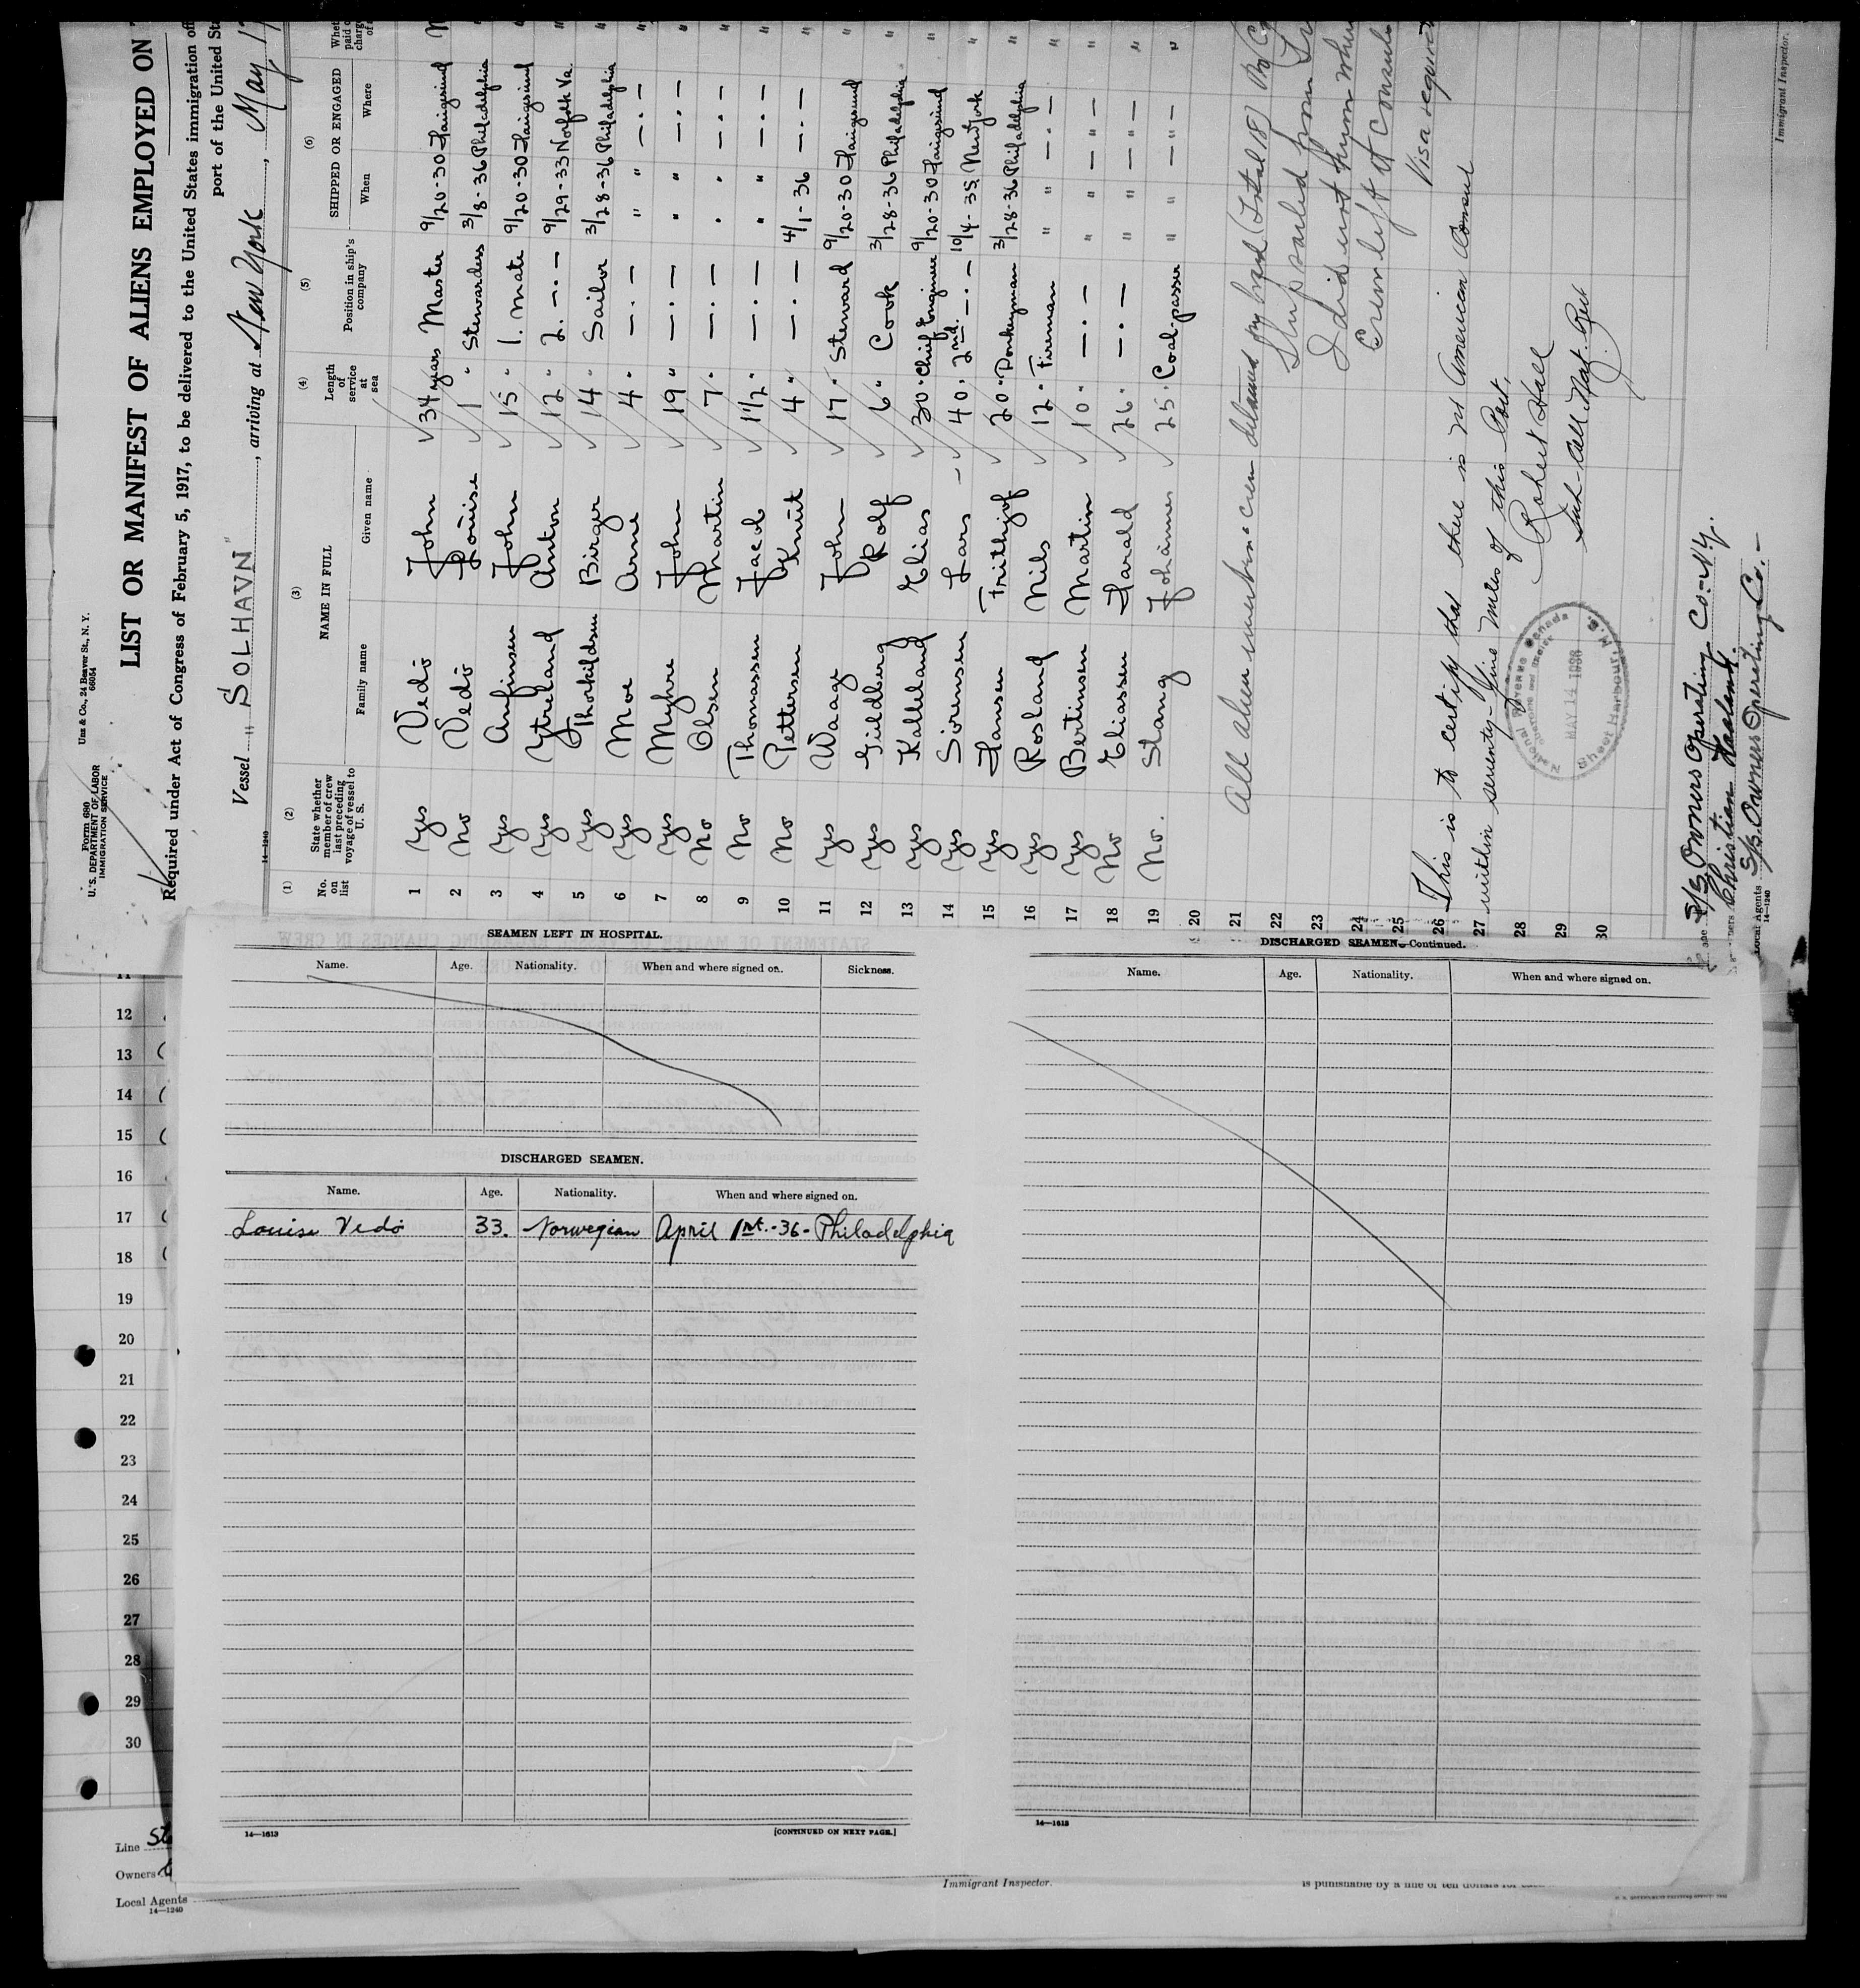 Form 680
U. S. DEPARTMENT OF LABOR
IMMIGRATION SERVICE
Uns & Co., 24 Beaver St., N. Y.
66054
LIST OR MANIFEST OF ALIENS EMPLOYED ON
Required under Act of Congress of February 5, 1917, to be delivered to the United States immigration off
port of the United St
Vessel "SOLHAVN", arriving at New York, May 17
14—1240
(1) (2) (3) (4) (5) (6)
No. on list
State whether member of crew last preceding voyage of vessel to U. S.
NAME IN FULL
Family name Given name
Length of service at sea
Position in ship's company
SHIPPED OR ENGAGED
When Where
1 Yes Vedö John 34 years Master 9/20-30 Haugesund
2 No Vedö Louise 1 " Stewardess 3/8-36 Philadelphia
3 Yes Anfinsen John 15 " 1. Mate 9/20-30 Haugesund
4 Yes Ytreland Anton 12 " 2. —.— 9/29-33 Norfolk Va.
5 Yes Thorkildsen Birger 14 " Sailor 3/28-36 Philadelphia
6 Yes Moe Arne 4 " —.— " —.—
7 Yes Myhre John 19 " —.— " —.—
8 No Olsen Martin 7 " —.— " —.—
9 No Thomassen Jacob 1 1/2 " —.— " —.—
10 No Pettersen Knut 4 " —.— 4/1-36 —.—
11 Yes Waage John 17 " Steward 9/20-30 Haugesund
12 Yes Gildberg Rolf 6 " Cook 3/28-36 Philadelphia
13 Yes Kalleland Elias 30 " Chief Engineer 9/20-30 Haugesund
14 Yes Sörensen Lars 40 " 2nd. —.— 10/4-35 New York
15 Yes Hansen Frithjof 20 " Donkeyman 3/28-36 Philadelphia
16 Yes Rosland Nils 12 " Fireman " —.—
17 Yes Bertinsen Martin 10 " —.— " — " —
18 No Eliassen Harald 26 " —.— " — " —
19 No. Stang Johannes 25 " Coal-passer " — " —
20
21 All alien members crew detained on board (Total 18)
22 Ship sailed from
23 I did not
24 Crew left at Consul
25 Visa required
26 This is to certify that there is no American Consul
27 within seventy-five miles of this Port.
28 Robert Hall
29 Sub-Coll Nat. Rev
30
National Revenue Canada
Customs and Excise
MAY 14 1936
Sheet Harbour, N.S.
S/S Owners Operating Co. - N.Y.
Owners Christian Haaland.
Local Agents S/S Owners Operating Co. —
14—1240
Immigrant Inspector.
SEAMEN LEFT IN HOSPITAL.
Name. Age. Nationality. When and where signed on. Sickness.
DISCHARGED SEAMEN.
Name. Age. Nationality. When and where signed on.
Louise Vedö 33. Norwegian April 1st.-36- Philadelphia
14—1613
[CONTINUED ON NEXT PAGE.]
DISCHARGED SEAMEN—Continued.
Name. Age. Nationality. When and where signed on.
14—1613
11
12
13
14
15
16
17
18
19
20
21
22
23
24
25
26
27
28
29
30
Line
Owners
Local Agents
14—1240
Immigrant Inspector.
is punishable by a fine of ten dollars for